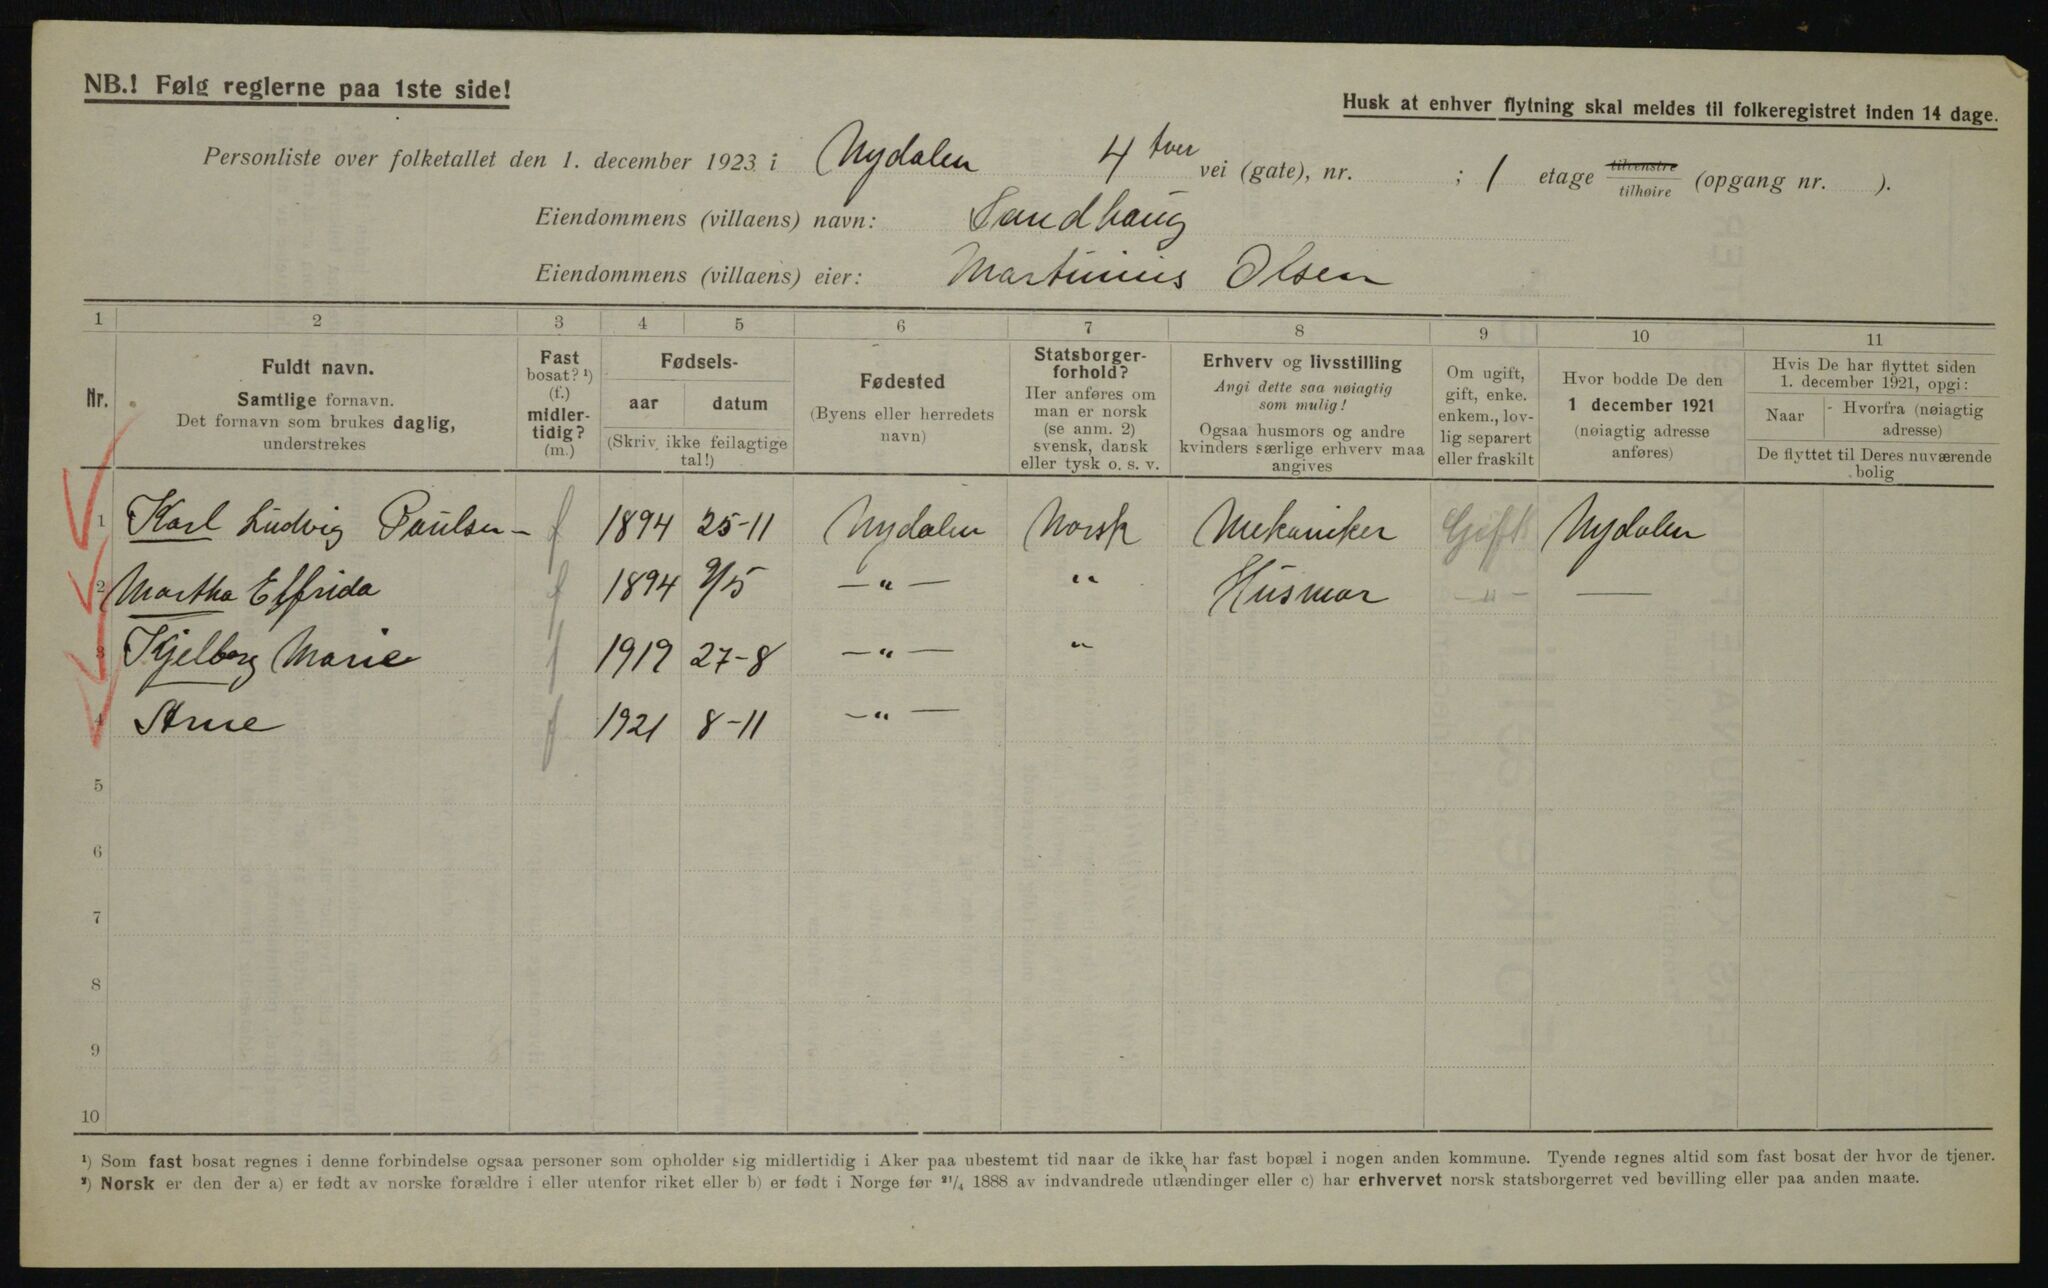 NB.! Følg reglerne paa 1ste side!
Husk at enhver flytning skal meldes til folkeregistret inden 14 dage.
Personliste over folketallet den 1. december 1923 i Nydalen 4 tver vei (gate), nr. ; 1 etage tilvenstre tilhøire (opgang nr. ).
Eiendommens (villaens) navn: Sandhaug
Eiendommens (villaens) eier: Martinius Olsen
1 2 3 4 5 6 7 8 9 10 11
Nr.
Fuldt navn.
Samtlige fornavn.
Det fornavn som brukes daglig,
understrekes
Fast
bosat? ¹)
(f.)
midler-
tidig?
(m.)
Fødsels-
aar datum
(Skriv ikke feilagtige
tal!)
Fødested
(Byens eller herredets
navn)
Statsborger-
forhold?
Her anføres om
man er norsk
(se anm. 2)
svensk, dansk
eller tysk o. s. v.
Erhverv og livsstilling
Angi dette saa nøiagtig
som mulig!
Ogsaa husmors og andre
kvinders særlige erhverv maa
angives
Om ugift,
gift, enke.
enkem., lov-
lig separert
eller fraskilt
Hvor bodde De den
1 december 1921
(nøiagtig adresse
anføres)
Hvis De har flyttet siden
1. december 1921, opgi:
Naar Hvorfra (nøiagtig
adresse)
De flyttet til Deres nuværende
bolig
1 Karl Ludvig Paulsen f 1894 25-11 Nydalen Norsk Mekaniker Gift Nydalen
2 Martha Elfrida f 1894 9/5 — " — " Husmor — " — —
3 Kjelborg Marie f 1919 27-8 — " — "
4 Arne f 1921 8-11 — " —
5
6
7
8
9
10
¹) Som fast bosat regnes i denne forbindelse ogsaa personer som opholder sig midlertidig i Aker paa ubestemt tid naar de ikke har fast bopæl i nogen anden kommune. Tyende regnes altid som fast bosat der hvor de tjener.
²) Norsk er den der a) er født av norske forældre i eller utenfor riket eller b) er født i Norge før ²¹/₄ 1888 av indvandrede utlændinger eller c) har erhvervet norsk statsborgerret ved bevilling eller paa anden maate.